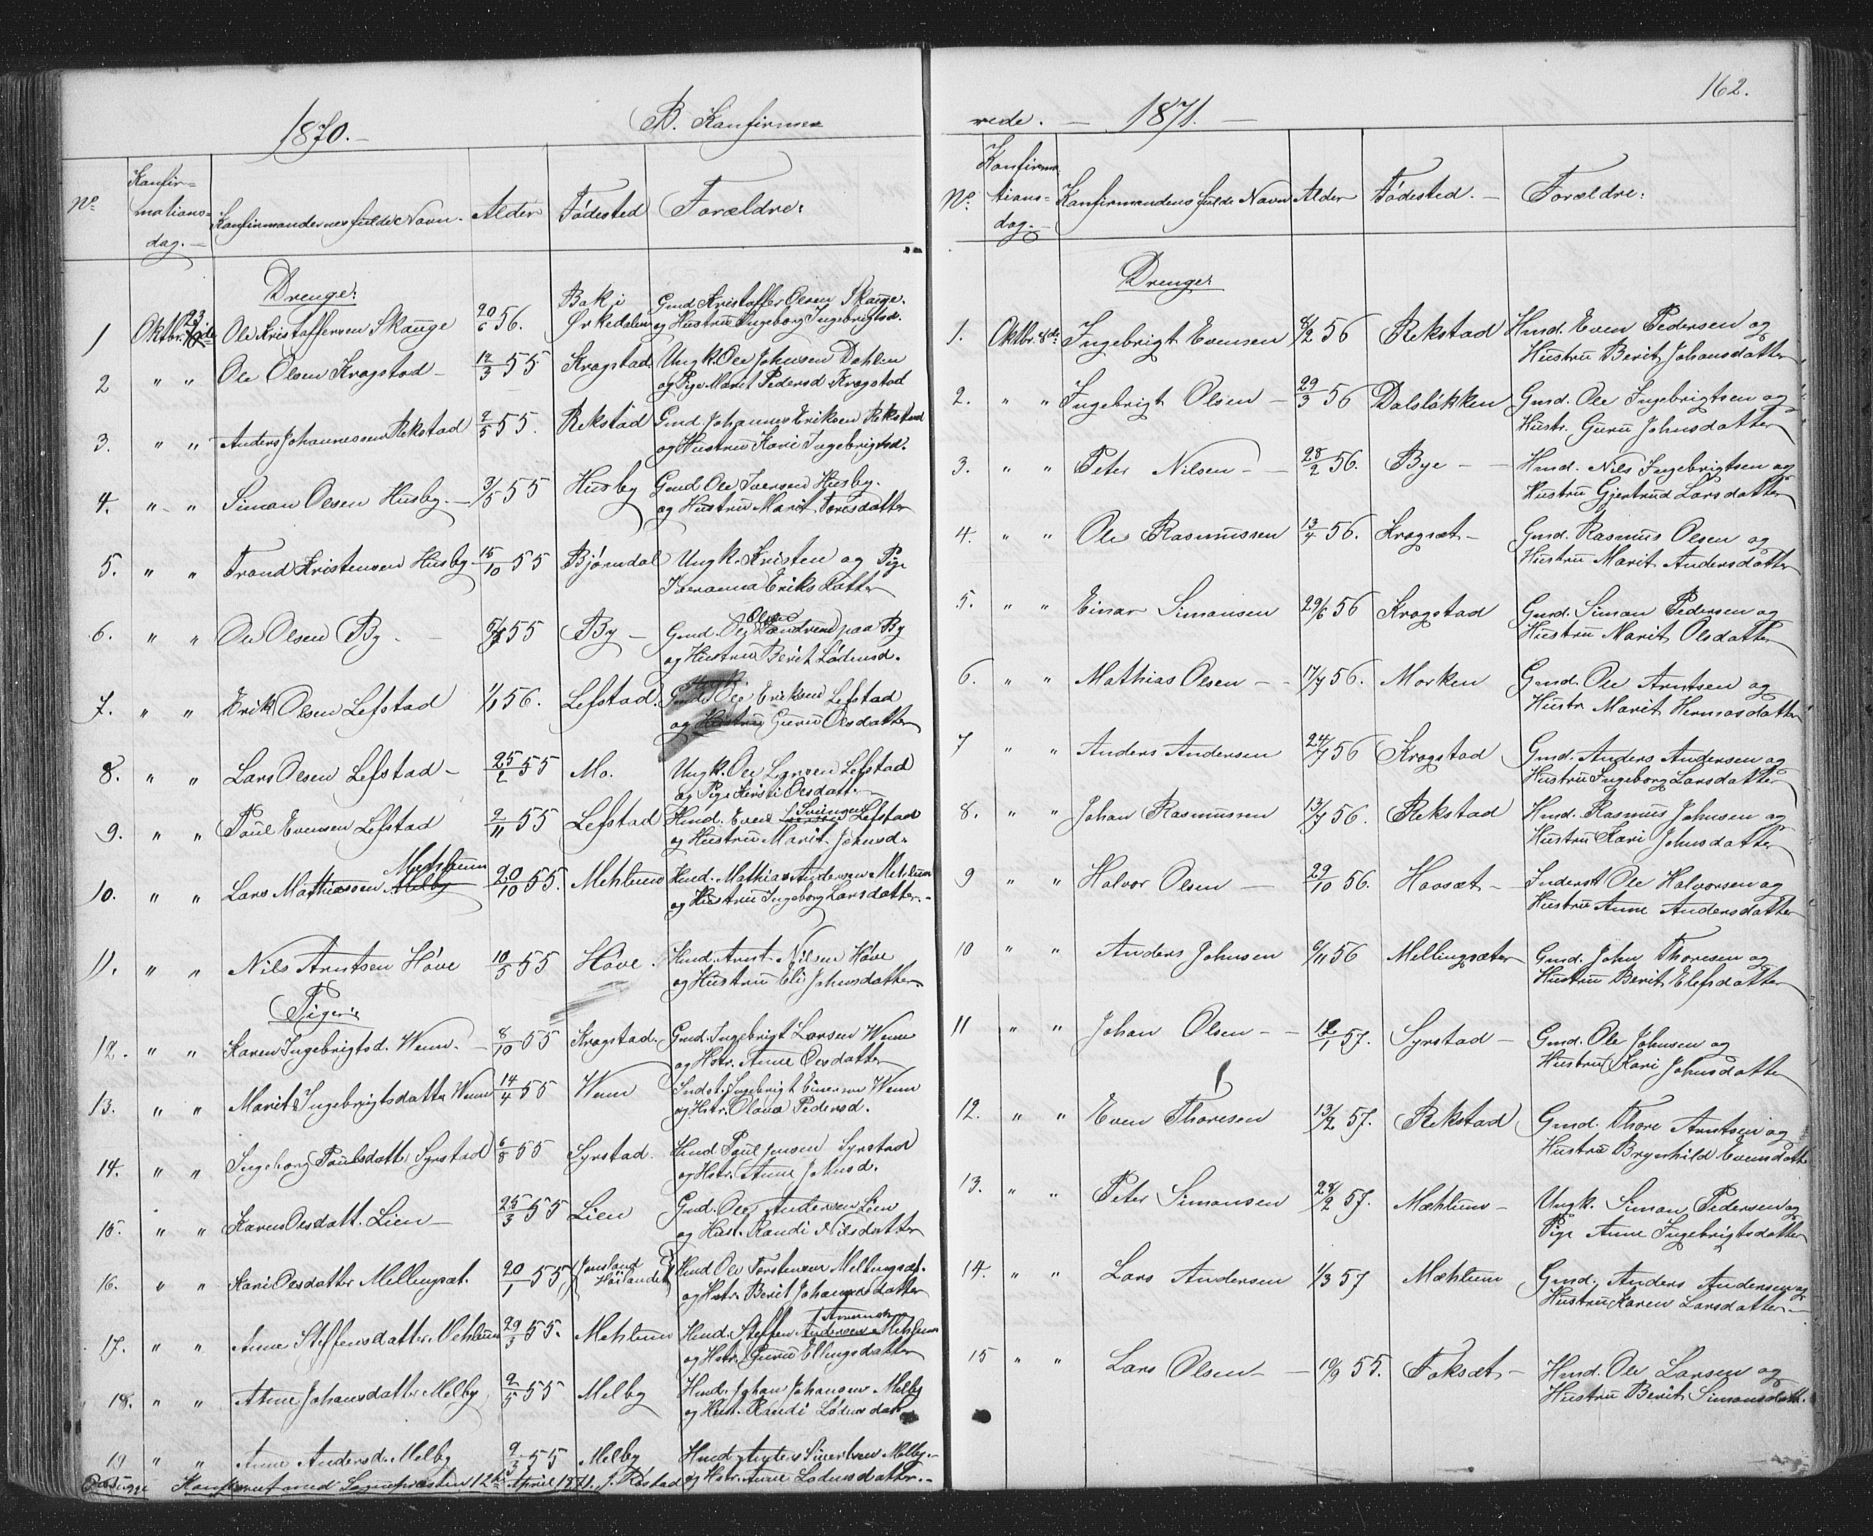 1870.
B. Konfirme
No.
Konfir-
mations-
dag.
Konfirmandernes fulde Navn.
Alder
Födested
Forældre:
Drenge:
1 Oktbr. 23 Ole Kristoffersen Skauge 20/6 56. Bak i Ørkedalen Gmd Kristoffer Olsen Skauge.
og Hustru Ingeborg Ingebrigtsd.
2 " " Ole Olsen Krogstad 12/3 55 Krogstad Ungk. Ole Johnsen Dahlen
og Pige Marit Pedersd Krogstad
3. " " Anders Johannessen Rekstad 2/5 55. Rekstad Gmd Johannes Eriksen Rekstad
og Hustru Kari Ingebrigtsd.
4. " " Simon Olsen Husby 3/5 55 Husby Gmd Ole Iversen Husby.
og Hustru Marit Toresdatter
5. " " Trond Kristensen Husby 15/10 55 Bjørndal Ungk. Kristen og Pige
Iveranna Eriksdatter
6. " " Ole Olsen By 55 By Gmd. Ole Olsen paa By
og Hustru Berit Lodensd.
7. " " Erik Olsen Lefstad 1/1 56. Lefstad. Ole Eriksen Lefstad
og Hustru Guru Olsdatter
8. " " Lars Olsen Lefstad 25/2 55 Mo. Ungk. Ole Larsen Lefstad
og Pige Kirsti Olsdatt.
9. " " Paul Evensen Lefstad 2/11 55 Lefstad Hmd. Even Lefstad
og Hustru Marit Johnsd.
10. " " Lars Mathiassen Melby Mehlum 20/10 55. Mehlum Hmd. Mathias Andersen Mehlum
og Hustru Ingeborg Larsdatter.
11. " " Nils Arntsen Hove 10/5 55 Hove. Hmd. Arnt Nilsen Hove
og Hustru Eli Johnsdatter
Piger:
12. " " Karen Ingebrigtsd. Wenn. 8/10 55 Krogstad. Gmd. Ingebrigt Larsen Wenn
og Hstr. Anne Olsdatter
13. " " Marit Ingebrigtsdatter Wenn 14/4 55 Wenn Indst. Ingebrigt Einersen Wenn
og Hstr. Olava Pedersd.
14. " " Ingeborg Paulsdatter Syrstad 6/8 55 Syrstad. Hmd Paul Jensen Syrstad
og Hstr. Anne Johnsd.
15. " " Karen Olsdatt. Lien 25/3 55 Lien Gmd. Ole Andersen Lien
og Hust. Randi Nilsdatter
16. " " Kari Olsdatter Mellingsæt. 20/1 55 Hmd Ole Torstensen Mellingsæt.
og Hstr. Berit Johannesdatter
17. " " Anne Steffensdatter Mehlum 29/3 55. Mehlum Hmd. Steffen Andersen Amundsen Mehlum
og Hstr. Guru Ellingsdatter
18. " " Anne Johansdatter Melby 2/5 55 Melby Hmd. Johan Johansen Melby
og Hust. Randi Lodensdatter
19 " " Anne Andersd. Melby 9/3 55 Melby Hmd Anders Sivertsen Melby
og Hstr. Anne Lodensdatter.
Konfereret med Sognepræsten 12te April 1871. J. Röstad
162.
rede. — 1871. —
No.
Konfirma
tions-
dag.
Konfirmandens fulde Navn
Alder
Födested.
Forældre:
Drenge:
1. Oktbr. 8de Ingebrigt Evensen 4/2 56 Rekstad Hmd. Even Pedersen og
Hustru Berit Johansdatter
2. " " Ingebrigt Olsen 29/3 56 Dalslökken Gmd. Ole Ingebrigtsen og
Hustr. Guru Johnsdatter
3. " " Peter Nilsen 28/2 56. Bye Hmd. Nils Ingebrigtsen og
Hustru Gjertrud Larsdatter
4. " " Ole Rasmussen 13/4 56. Krogsæt Gmd. Rasmus Olsen og
Hustru Marit Andersdatter
5. " " Einar Simonsen 29/6 56 Krogstad Gmd. Simon Pedersen og
Hustru Marit Olsdatter
6. " " Mathias Olsen 17/7 56. Morken Gmd. Ole Arntsen og
Hustr Marit Hermosdatter
7 " " Anders Andersen 24/7 56 Krogstad Gmd. Anders Andersen og
Hustru Ingeborg Larsdatter
8. " " Johan Rasmussen 13/7 56. Rekstad Hmd. Rasmus Johnsen og
Hustru Kari Johnsdatter
9 " " Halvor Olsen 29/10 56. Havsæt Inderst Ole Halvorsen og
Hustru Anne Andersdatter
10 " " Anders Johnsen 6/11 56 Mellingsæter Gmd. John Thoresen og
Hustru Berit Elefsdatter
11 " " Johan Olsen 12/1 57. Syrstad Gmd. Ole Johnsen og
Hustru Kari Johnsdatter
12. " " Even Thoresen 13/2 57. Rekstad Gmd. Thore Arntsen og
Hustru Brynhild Evensdatter
13. " " Peter Simonsen 28/2 57. Mæhlum Ungk. Simon Pedersen og
Pige Anne Ingebrigtsdatter
14. " " Lars Andersen 1/3 57 Mæhlum Gmd. Anders Andersen og
Hustru Karen Larsdatter
15 " " Lars Olsen 10/9 55. Foksæt Hmd. Ole Larsen og
Hustru Berit Simonsdatt.